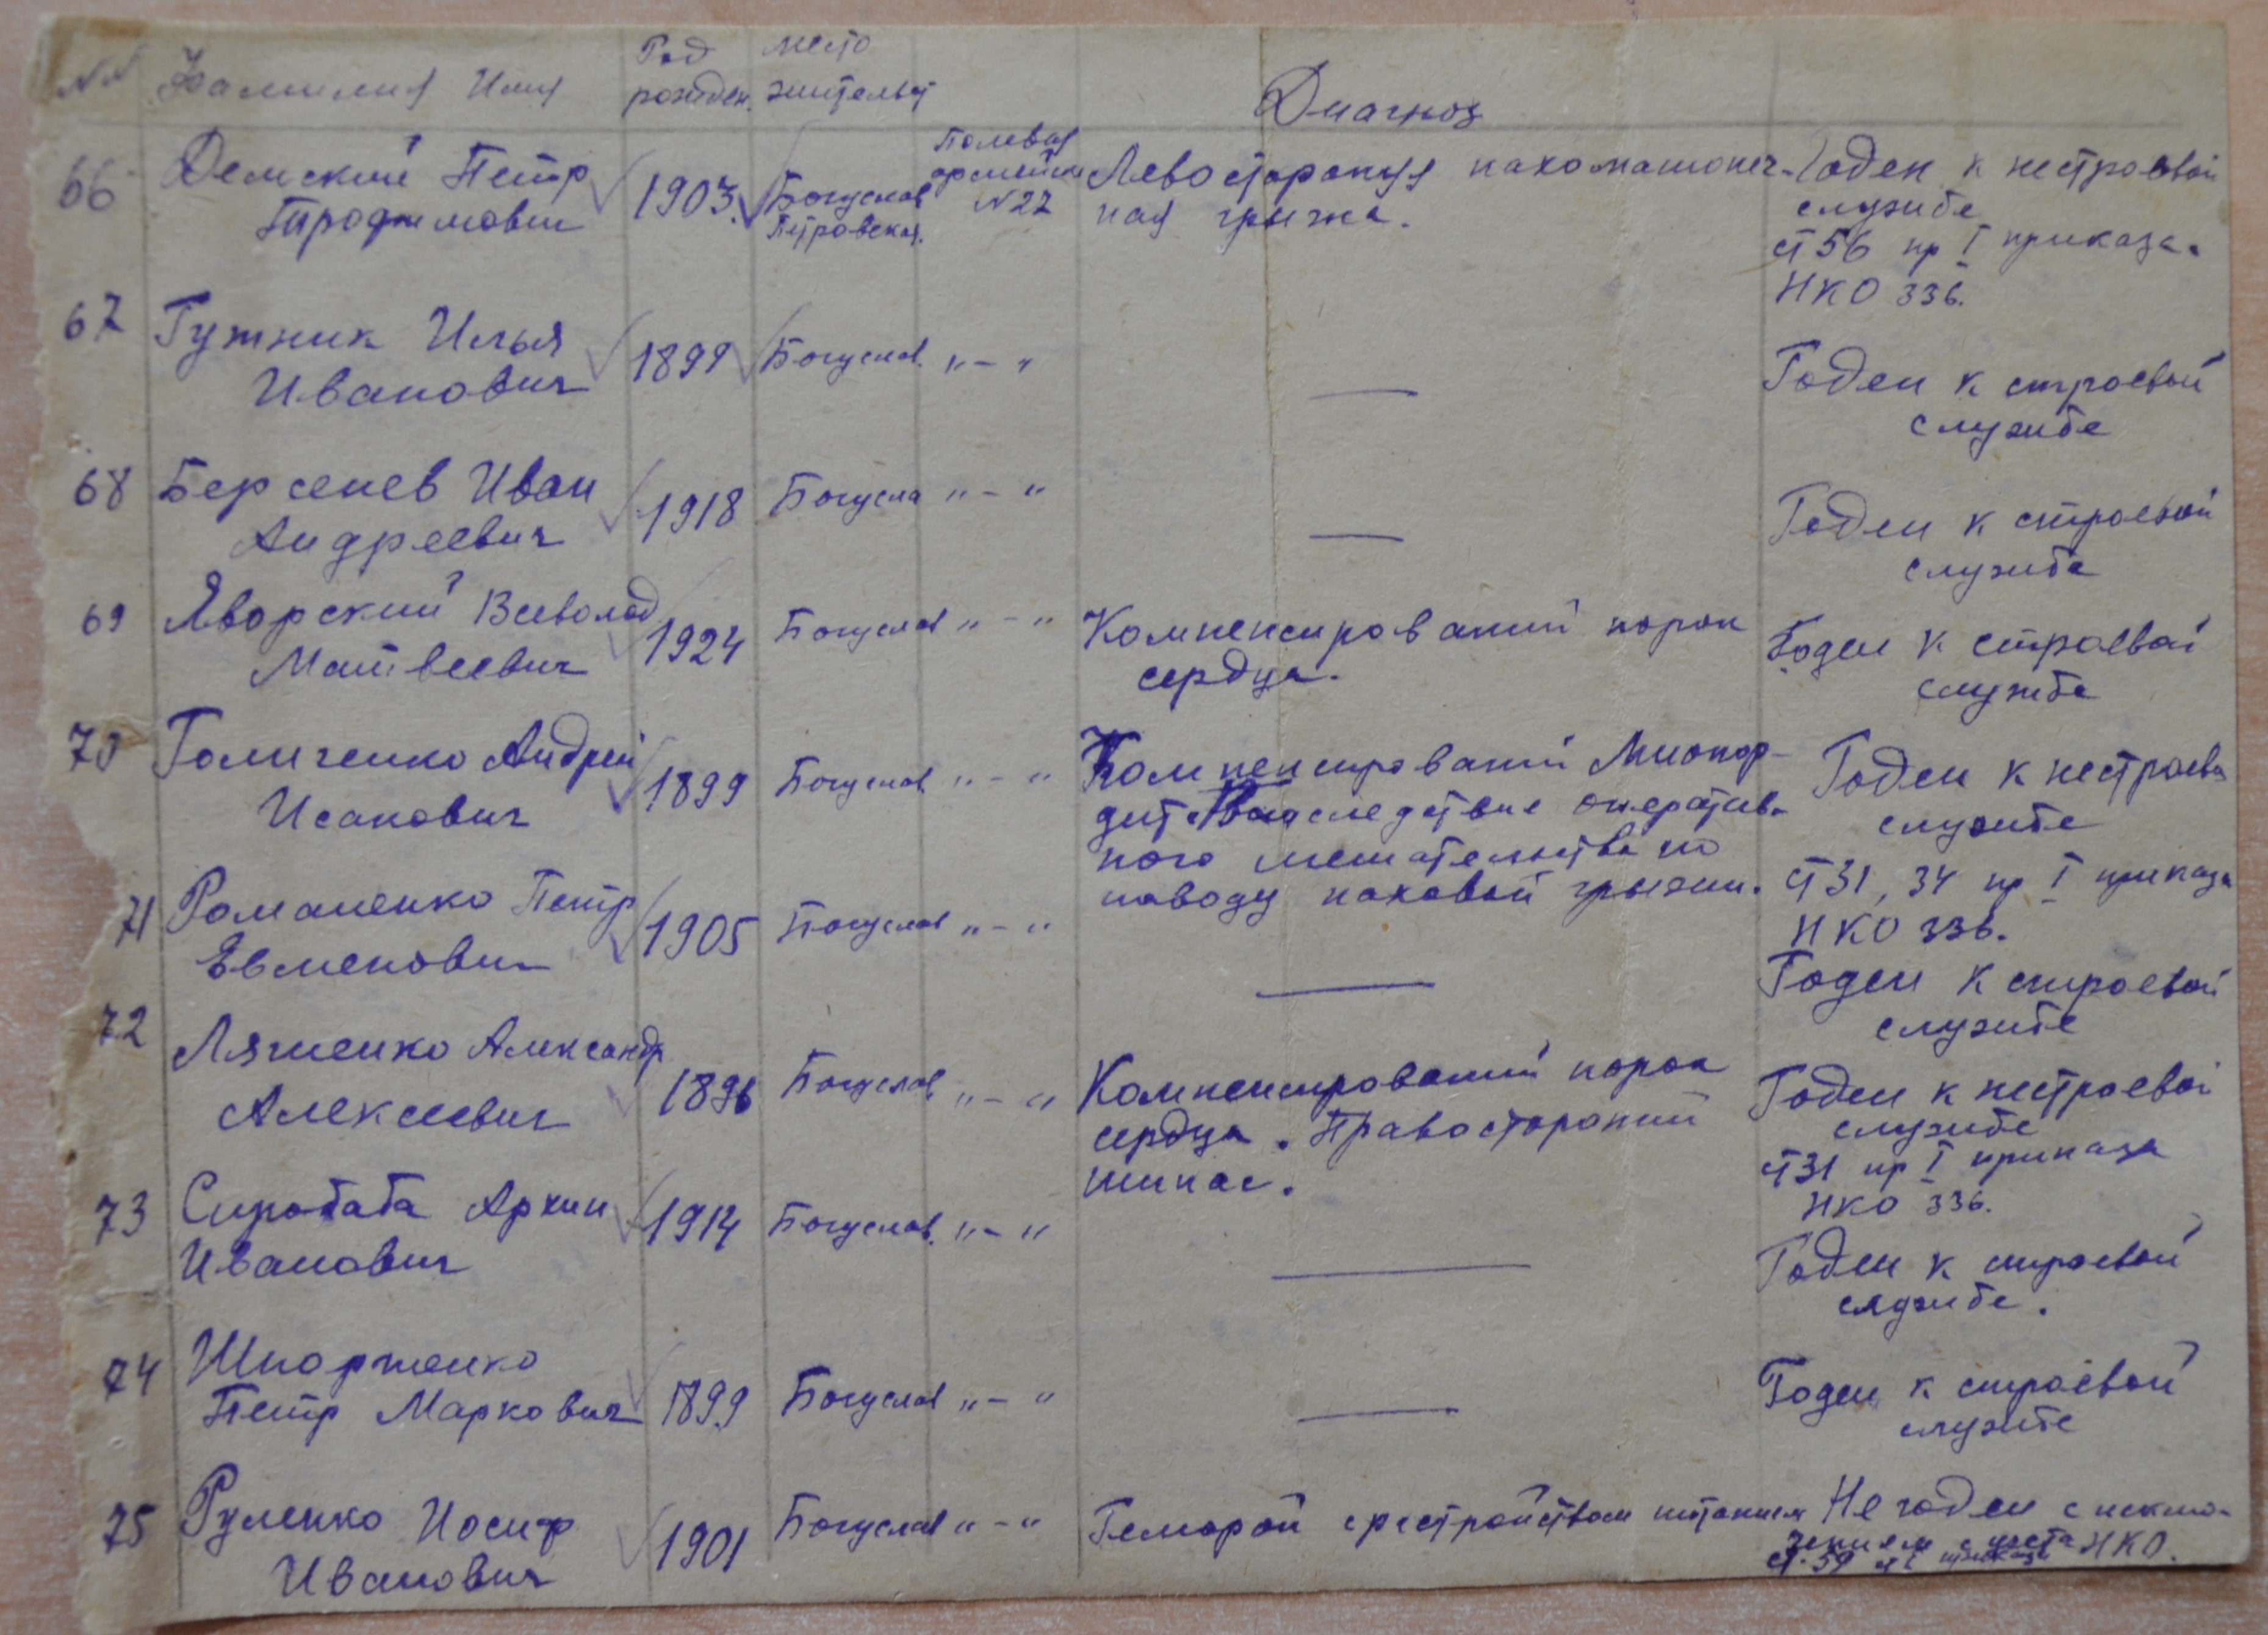 NN Фамилия Имя Год рожден. место жительст Диагноз
66 Демский Петр Трофимович 1903. Богуслав Петровская. Полевая армейск N 27 Левосторонняя пахомошоноч-
ная грыжа.
Годен к нестроевой
службе
ст 56 пр I приказа.
НКО 336.
67 Гутник Илья
Иванович 1899 Богуслав. "–" —
Годен к строевой
службе
68 Берсенев Иван
Андреевич 1918 Богусла "–" —
Годен к строевой
службе
69 Яворский Всеволод
Матвеевич 1924 Богуслав "–" Компенсирований порок
сердца.
Годен к строевой
службе
70 Голиченко Андрей
Исакович 1899 Богуслав "–" Компенсирований Миокар-
дит следствие оператив-
ного мешательства по
поводу паховой грыжи.
Годен к нестроево
службе
ст 31, 34 пр I приказа
НКО 336.
71 Романенко Петр
Евменович 1905 Богуслав "–" —
Годен к строевой
службе
72 Ляшенко Александр
Алексеевич 1896 Богуслав "–" Компенсирований порок
сердца. Правосторонний
Годен к нестроевой
службе
ст 31 пр I приказа
НКО 336.
73 Сиробаба Архип
Иванович 1914 Богуслав. "–" —
Годен к строевой
службе.
74 Шпортенко
Петр Маркович 1899 Богуслав "–" —
Годен к строевой
службе
75 Руленко Иосиф
Иванович 1901 Богуслав "–" Геморой с растройством питания
Не годен с исклю-
чением с учета
ст. 59 пр I приказа НКО.